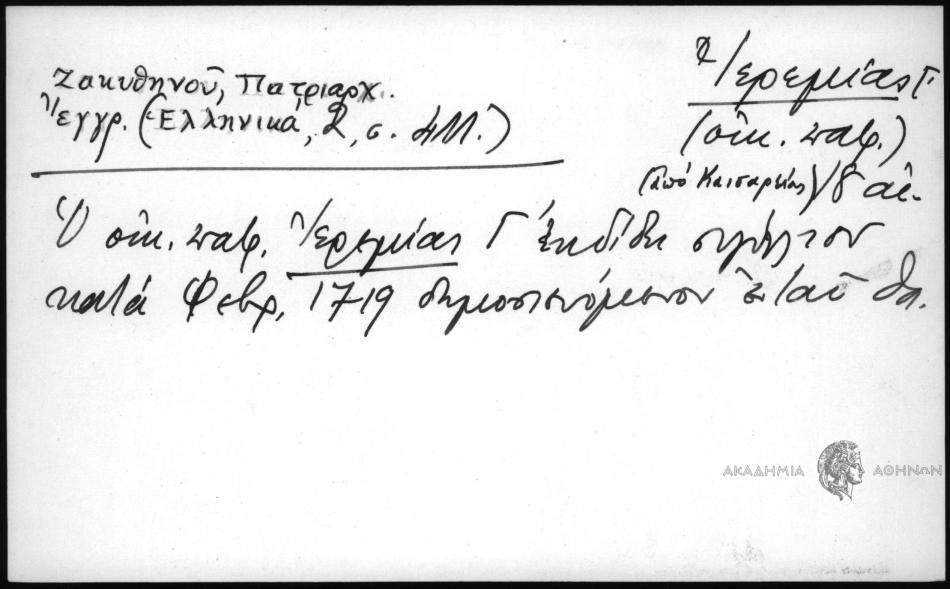 Ζακυθηνοῦ, Πατριαρχ.
ἔγγρ. (Ἑλληνικά, 2, σ. 411.)
Ἱερεμίας Γ'
(οἰκ. πατρ.)
(ἀπό Καισαρείας) 18 αἰ.
Ὁ οἰκ. πατρ. Ἱερεμίας Γ' ἐκδίδει σιγίλλιον
κατά Φεβρ. 1719 δημοσιευόμενον ἐνταῦθα.
ΑΚΑΔΗΜΙΑ ΑΘΗΝΩΝ